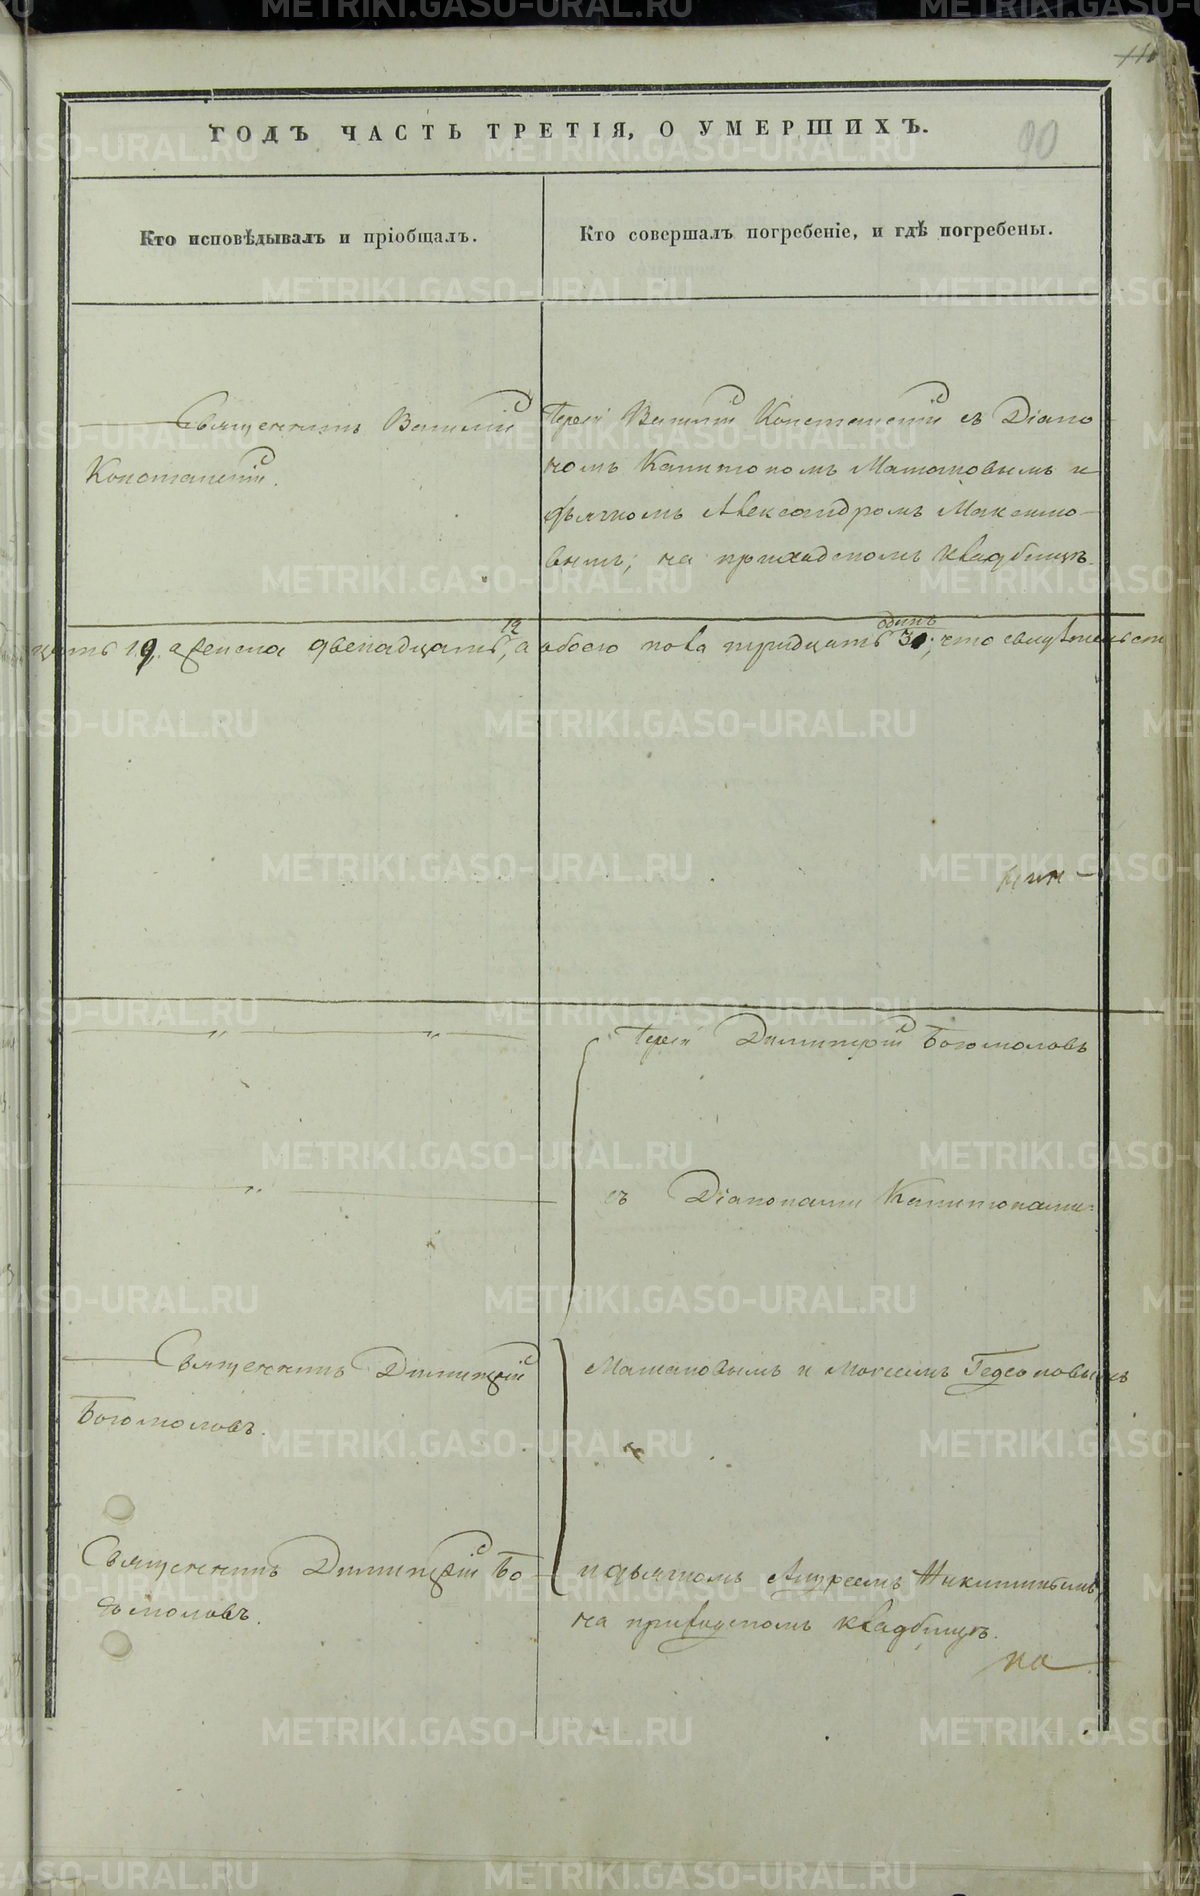 110
ГОДЪ ЧАСТЬ ТРЕТІЯ, О УМЕРШИХЪ.
90
Кто исповѣдывалъ и пріобщалъ.
Кто совершалъ погребеніе, и гдѣ погребены.
Священникъ Василій
Іерей Василій с Діако
номъ Капитономъ и
дьячкомъ Александромъ Максимо-
вымъ; на приходскомъ кладбищѣ.
цать 19. а женска двенадцать, 12 а обоего пола тридцать одинъ 31; что свидѣтельст
Іерей Димитрій Богомоловъ
съ Діаконами Капитонами
Священникъ Димитрій
Богомоловъ.
и Моисеемъ Гедеоновымъ
Священникъ Димитрій Бо
гомоловъ.
и дьячкомъ Андреемъ Никитинымъ,
на приходскомъ кладбищѣ.
METRIKI.GASO-URAL.RU